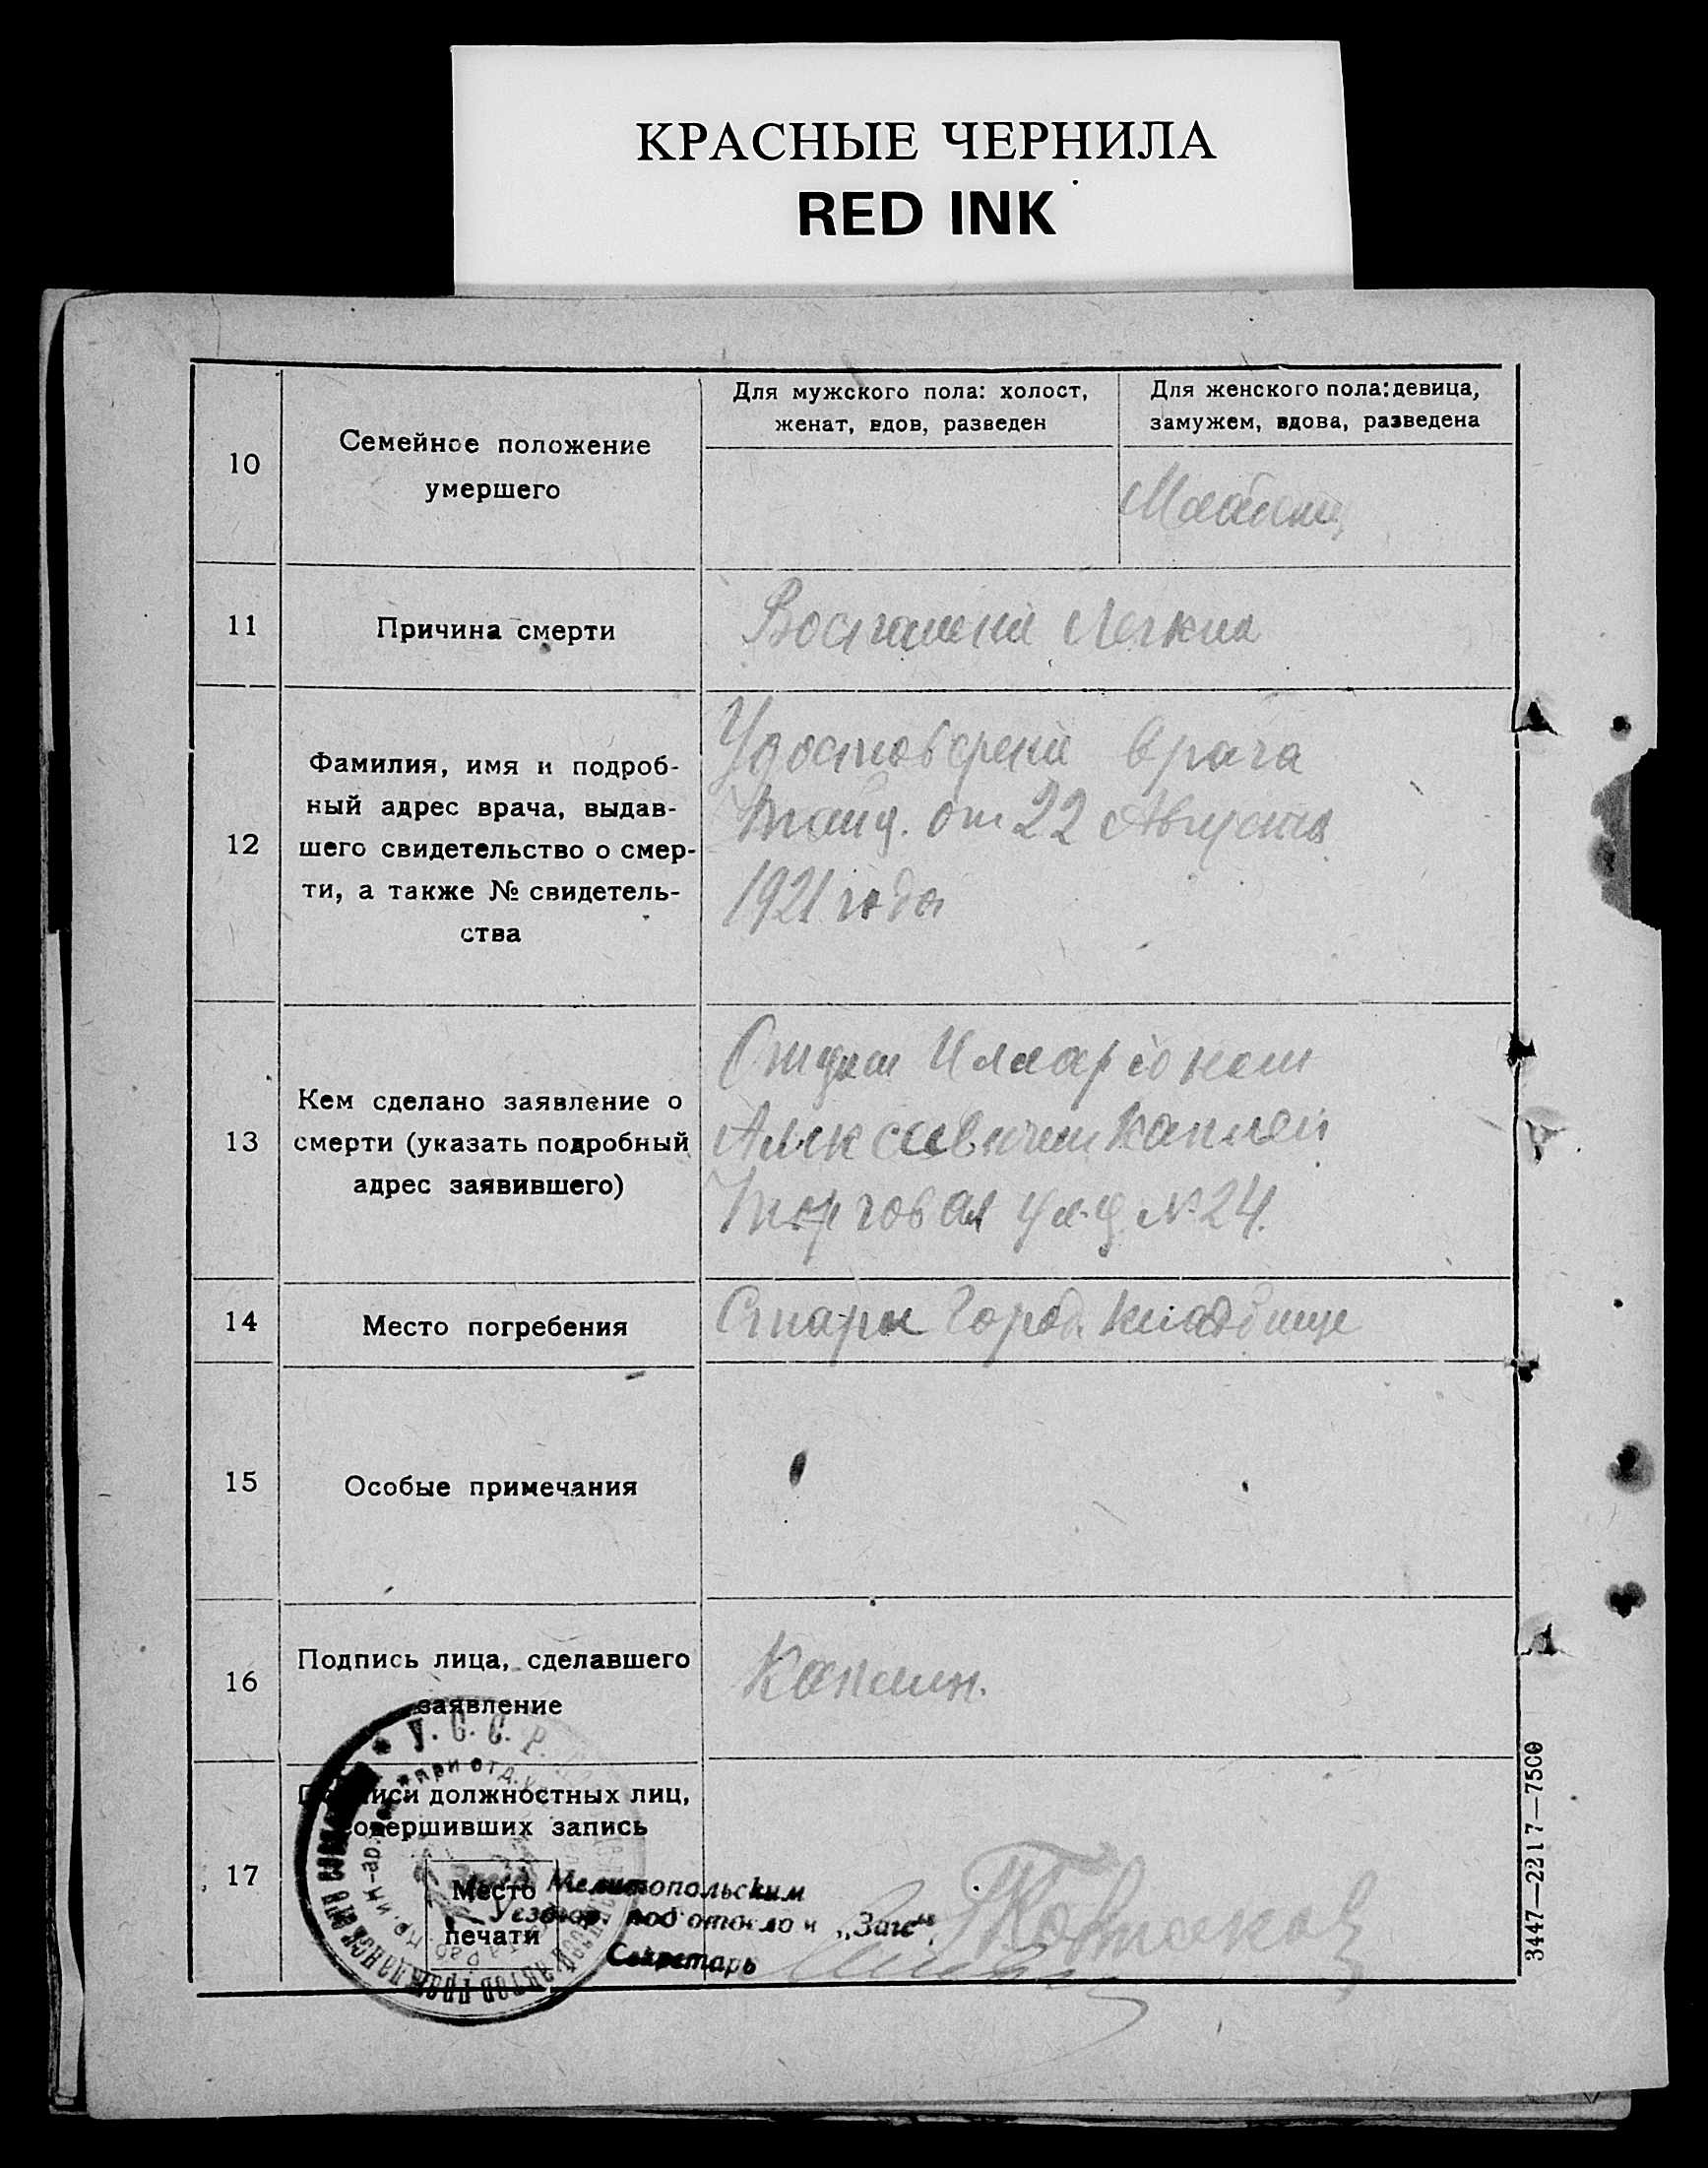 КРАСНЫЕ ЧЕРНИЛА
RED INK
10
Семейное положение
умершего
Для мужского пола: холост,
женат, вдов, разведен
Для женского пола: девица,
замужем, вдова, разведена
11
Причина смерти
Воспалени Легких
12
Фамилия, имя и подроб-
ный адрес врача, выдав-
шего свидетельство о смер-
ти, а также № свидетель-
ства
Удостоверени врача
от 22 Августа
1921 года
13
Кем сделано заявление о
смерти (указать подробный
адрес заявившего)
Отцем Иларіонем
Каплей
Торговая ул. д № 24.
14
Место погребения
Старое Город. Кладбище
15
Особые примечания
16
Подпись лица, сделавшего
заявление
17
Подписи должностных лиц,
совершивших запись
Место
печати
У. С. С. Р.
Мелитопольским
под отдело „Загс“
Секретарь
3447—2217—7500